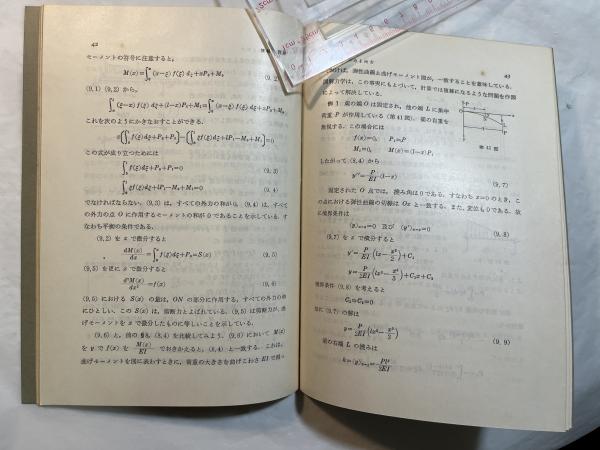 42
モーメントの符号に注意すると，
M(x)=∫₀ˣ(x−ξ) f(ξ) dξ+xP₀+M₀ (9.2)
(9.1) (9.2) から，
これを次のようにかきなおすことができる．
この式が成り立つためには
∫₀ˡ f(ξ)dξ+P₁+P₀=0 (9.3)
∫₀ˡ ξf(ξ)dξ+lP₁−M₁+M₀=0 (9.4)
でなければならない．(9.3) は，すべての外力の和が0，(9.4) は，すべて
の外力の点 O に作用するモーメントの和が0であることを示している．す
なわち平衡の条件である．
(9.2) を x で微分すると
dM(x)/dx =∫₀ˣ f(ξ)dξ+P₀=S(x) (9.5)
(9.5) を更に x で微分すると
d²M(x)/dx² =f(x) (9.6)
(9.5) における S(x) の量は，ON の部分に作用する，すべての外力の和
にひとしい．この S(x) は，剪断力とよばれている．(9.5) は剪断力が，曲
げモーメントを x で微分したものに等しいことを示している．
(9.6) と，前の (8.4) を比較してみよう．(9.6) において M(x)
を y で f(x) を M(x)/EI でおきかえると，(8.4) と一致する．これは，
曲げモーメントを図に表わすときに，荷重の大きさを曲げこわさ EI で
43
弾性曲線と曲げモーメント図が，一致することを意味している．
図解力学は，この事実にもとづいて，計算では複雑になるような問題を作図
によって解決している．
例 1 梁の端 O は固定され，他の端 L に集中
荷重 P が作用している (第41図)．梁の自重を
無視する．この場合には
f(x)=0, P₁=P
M₁=0, M(x)=(l−x)P,
第 41 図
したがって (8.4) から
y''= P/EI (l−x) (9.7)
固定された O 点では，撓み角は0である．すなわち x=0 のとき，こ
の点における弾性曲線の切線は Ox と一致する．また，変位も0である．故
に境界条件は
(y)ₓ₌₀=0 及び (y')ₓ₌₀=0 (9.8)
(9.7) を x で積分すると
y'= P/EI (lx− x²/2)+C₁
y= P/2EI (lx²− x³/3)+C₁x+C₂
境界条件 (9.8) を考えると
C₁=C₂=0
故に (9.7) の解は
y= P/2EI (lx²− x³/3) (9.9)
梁の右端 L の撓みは